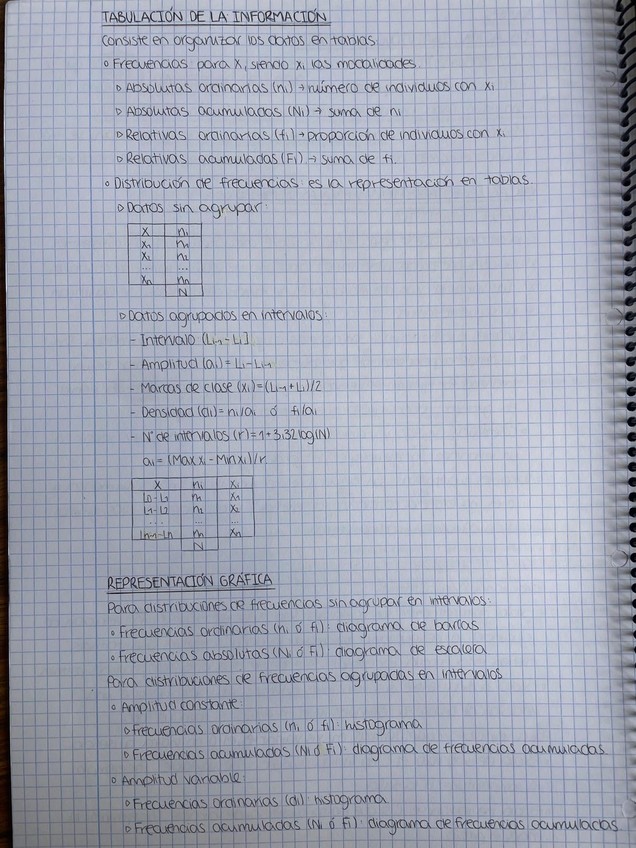 TABULACIÓN DE LA INFORMACIÓN
Consiste en organizar los datos en tablas.
Frecuencias para X, siendo xi las modalidades.
Absolutas ordinarias (ni) → número de individuos con xi
Absolutas acumuladas (Ni) → suma de ni
Relativas ordinarias (fi) → proporción de individuos con xi
Relativas acumuladas (Fi) → suma de fi.
Distribución de frecuencias: es la representación en tablas.
Datos sin agrupar:
X ni
x1 n1
x2 n2
... ...
xn nn
N
Datos agrupados en intervalos:
- Intervalo (Li-1 - Li]
- Amplitud (ai) = Li - Li-1
- Marcas de clase (xi) = (Li-1 + Li)/2
- Densidad (di) = ni/ai ó fi/ai
- Nº de intervalos (r) = 1 + 3,32 log(N)
ai = (Max xi - Min xi)/r
X ni xi
L0 - L1 n1 x1
L1 - L2 n2 x2
... ... ...
Ln-1 - Ln nn xn
N
REPRESENTACIÓN GRÁFICA
Para distribuciones de frecuencias sin agrupar en intervalos:
Frecuencias ordinarias (ni ó fi): diagrama de barras
Frecuencias absolutas (Ni ó Fi): diagrama de escalera
Para distribuciones de frecuencias agrupadas en intervalos
Amplitud constante:
Frecuencias ordinarias (ni ó fi): histograma
Frecuencias acumuladas (Ni ó Fi): diagrama de frecuencias acumuladas
Amplitud variable:
Frecuencias ordinarias (di): histograma
Frecuencias acumuladas (Ni ó Fi): diagrama de frecuencias acumuladas.